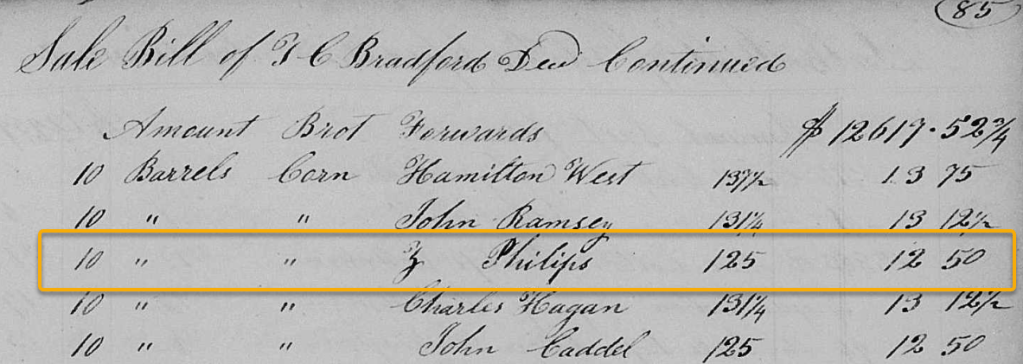 85
Sale Bill of T C Bradford Decd Continued
Amount Brot Forwards $ 12617.52¾
10 Barrels Corn Hamilton West 137½ 13 75
10 " " John Ramsey 131¼ 13 12½
10 " " Z Philips 125 12 50
10 " " Charles Hagan 131¼ 13 12½
10 " " John Caddel 125 12 50